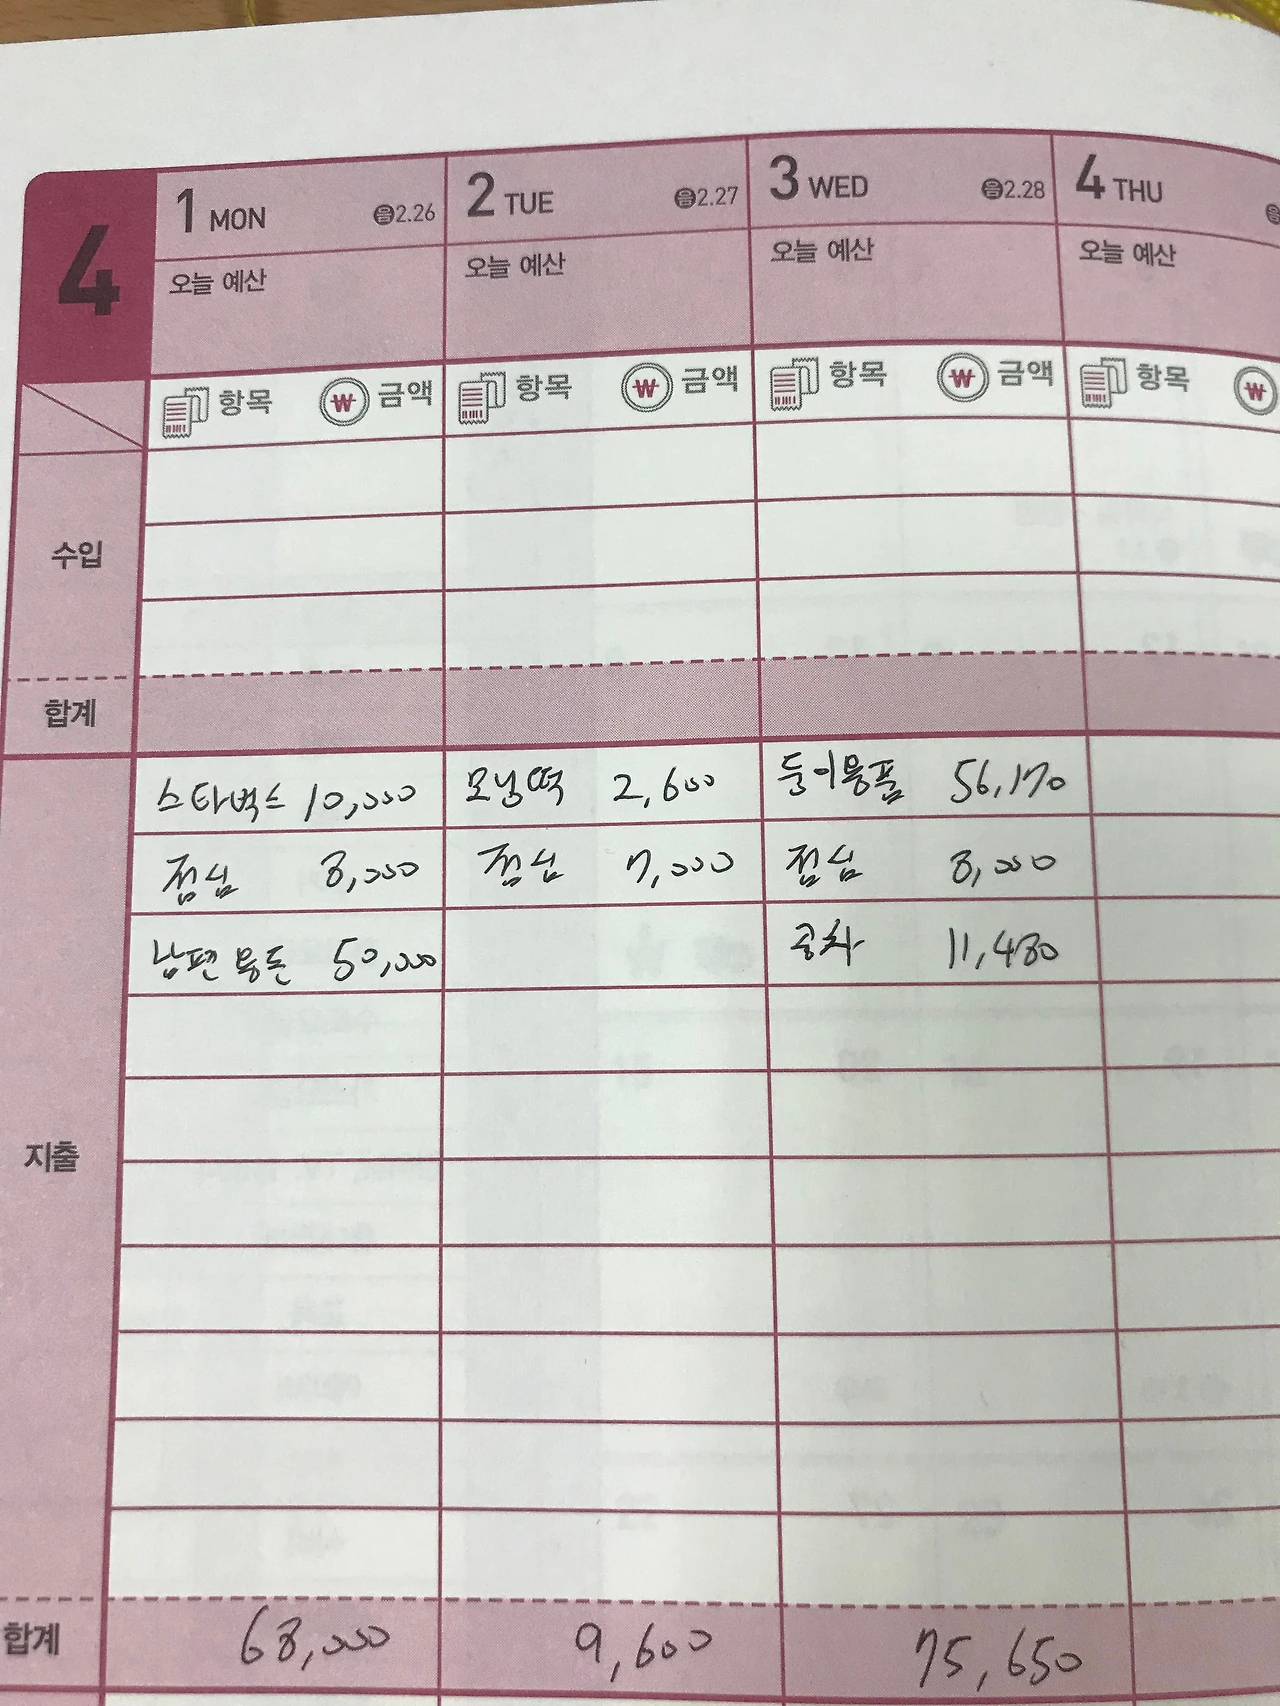 4
1 MON 음2.26 2 TUE 음2.27 3 WED 음2.28 4 THU 음
오늘 예산 오늘 예산 오늘 예산 오늘 예산
항목 ₩ 금액 항목 ₩ 금액 항목 ₩ 금액 항목 ₩
수입
합계
지출
스타벅스 10,000 모닝떡 2,600 둥이용품 56,170
점심 8,000 점심 7,000 점심 8,000
남편 용돈 50,000 공차 11,480
합계 68,000 9,600 75,650